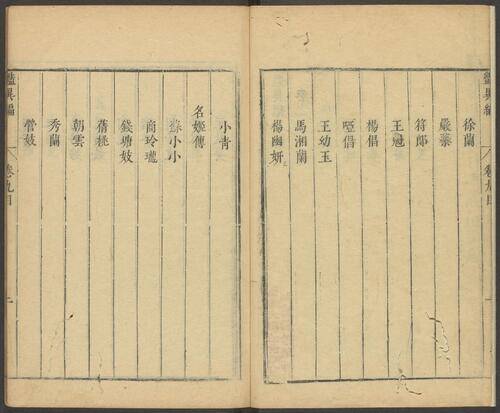 豔異編
卷九目
徐蘭
嚴蘂
符郎
王魁
楊倡
啞倡
王幼玉
馬湘蘭
楊幽妍
小青
名姬傳
蘇小小
商玲瓏
錢塘妓
蒨桃
朝雲
秀蘭
營妓
豔異編
卷九目
一